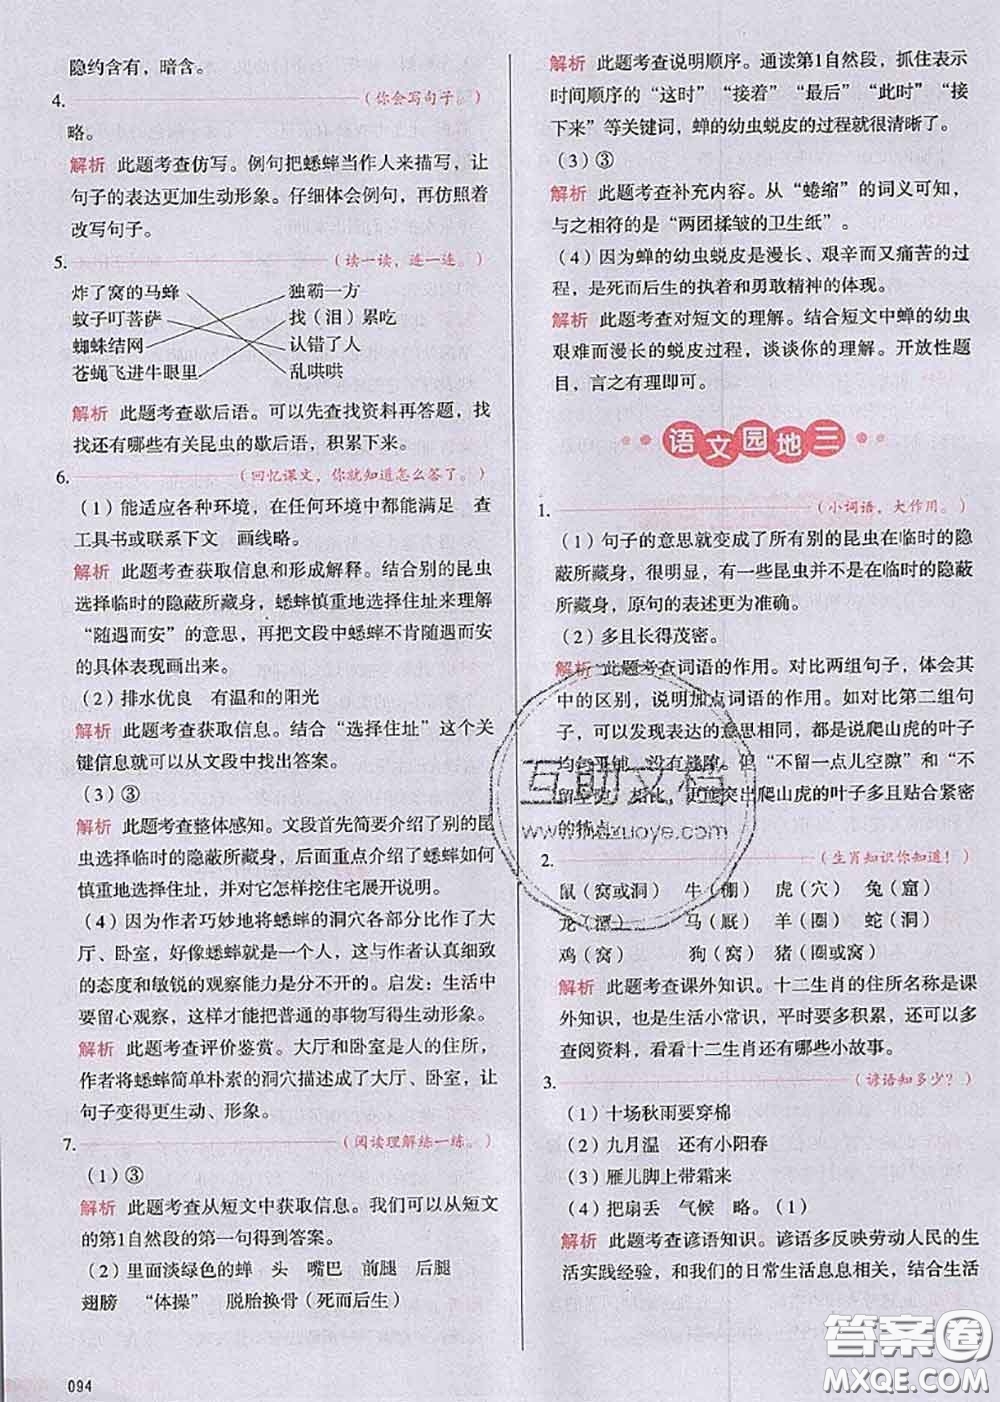 隐约含有，暗含。
4.（你会写句子。）
略。
解析 此题考查仿写。例句把蟋蟀当作人来描写，让
句子的表达更加生动形象。仔细体会例句，再仿照着
改写句子。
5.（读一读，连一连。）
炸了窝的马蜂 独霸一方
蚊子叮菩萨 找（泪）累吃
蜘蛛结网 认错了人
苍蝇飞进牛眼里 乱哄哄
解析 此题考查歇后语。可以先查找资料再答题，找
找还有哪些有关昆虫的歇后语，积累下来。
6.（回忆课文，你就知道怎么答了。）
（1）能适应各种环境，在任何环境中都能满足 查
工具书或联系下文 画线略。
解析 此题考查获取信息和形成解释。结合别的昆虫
选择临时的隐蔽所藏身，蟋蟀慎重地选择住址来理解
“随遇而安”的意思，再把文段中蟋蟀不肯随遇而安
的具体表现画出来。
（2）排水优良 有温和的阳光
解析 此题考查获取信息。结合“选择住址”这个关
键信息就可以从文段中找出答案。
（3）③
解析 此题考查整体感知。文段首先简要介绍了别的昆
虫选择临时的隐蔽所藏身，后面重点介绍了蟋蟀如何
慎重地选择住址，并对它怎样挖住宅展开说明。
（4）因为作者巧妙地将蟋蟀的洞穴各部分比作了大
厅、卧室，好像蟋蟀就是一个人，这与作者认真细致
的态度和敏锐的观察能力是分不开的。启发：生活中
要留心观察，这样才能把普通的事物写得生动形象。
解析 此题考查评价鉴赏。大厅和卧室是人的住所，
作者将蟋蟀简单朴素的洞穴描述成了大厅、卧室，让
句子变得更生动、形象。
7.（阅读理解练一练。）
（1）③
解析 此题考查从短文中获取信息。我们可以从短文
的第1自然段的第一句得到答案。
（2）里面淡绿色的蝉 头 嘴巴 前腿 后腿
翅膀 “体操” 脱胎换骨（死而后生）
094
解析 此题考查说明顺序。通读第1自然段，抓住表示
时间顺序的“这时”“接着”“最后”“此时”“接
下来”等关键词，蝉的幼虫蜕皮的过程就很清晰了。
（3）③
解析 此题考查补充内容。从“蜷缩”的词义可知，
与之相符的是“两团揉皱的卫生纸”。
（4）因为蝉的幼虫蜕皮是漫长、艰辛而又痛苦的过
程，是死而后生的执着和勇敢精神的体现。
解析 此题考查对短文的理解。结合短文中蝉的幼虫
艰难而漫长的蜕皮过程，谈谈你的理解。开放性题
目，言之有理即可。
语文园地三
1.（小词语，大作用。）
（1）句子的意思就变成了所有别的昆虫在临时的隐
蔽所藏身，很明显，有一些昆虫并不是在临时的隐蔽
所藏身，原句的表述更为准确。
（2）多且长得茂密。
解析 此题考查词语的作用。对比两组句子，体会其
中的区别，说明加点词语的作用。如对比第二组句
子，可以发现表达的意思相同，都是说爬山虎的叶子
均匀平铺，没有缝隙。但“不留一点儿空隙”和“不
留空隙”相比，更能突出爬山虎的叶子多且贴合紧密
的特点。
2.（生肖知识你知道！）
鼠（窝或洞） 牛（棚） 虎（穴） 兔（窟）
龙（潭） 马（厩） 羊（圈） 蛇（洞）
鸡（窝） 狗（窝） 猪（圈或窝）
解析 此题考查课外知识。十二生肖的住所名称是课
外知识，也是生活小常识，平时要多积累，还可以多
查阅资料，看看十二生肖还有哪些小故事。
3.（谚语知多少？）
（1）十场秋雨要穿棉
（2）九月温 还有小阳春
（3）雁儿脚上带霜来
（4）把扇丢 气候 略。（1）
解析 此题考查谚语知识。谚语多反映劳动人民的生
活实践经验，和我们的日常生活息息相关，结合生活
互助文档
www.hzuoye.com
答案圈
MXQE.COM